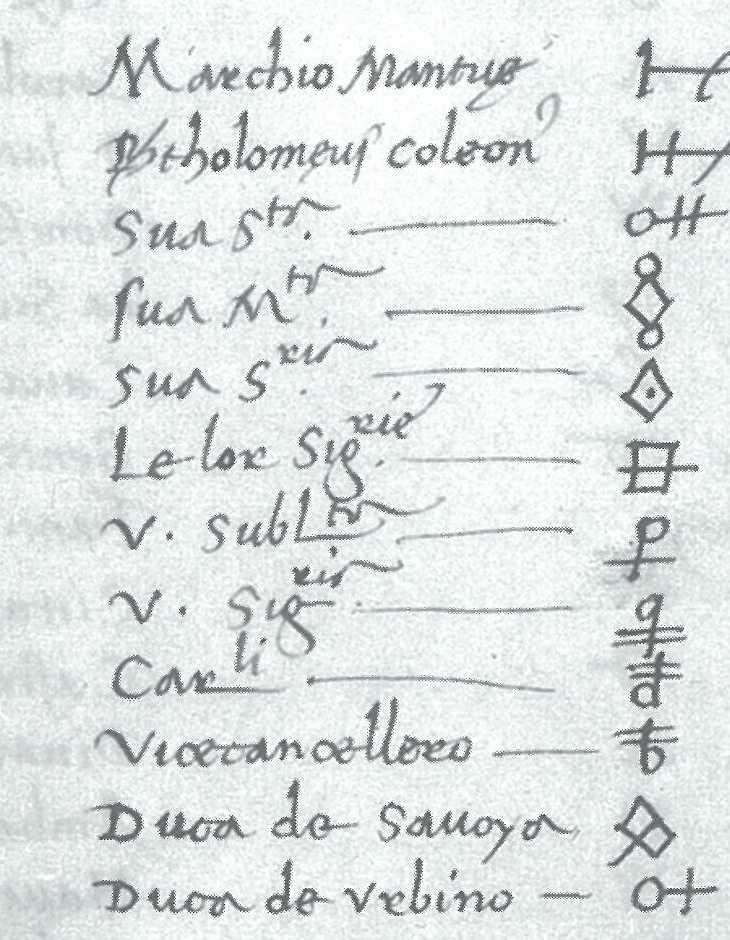 Marchio Mantue
Ptholomeus coleon
Sua Str.
sua Mtr.
sua Sria.
Le lor Sigrie.
v. subLtr
v. Sigria.
Carli
Vicecancellero
Duca de Savoya
Duca de Vrbino